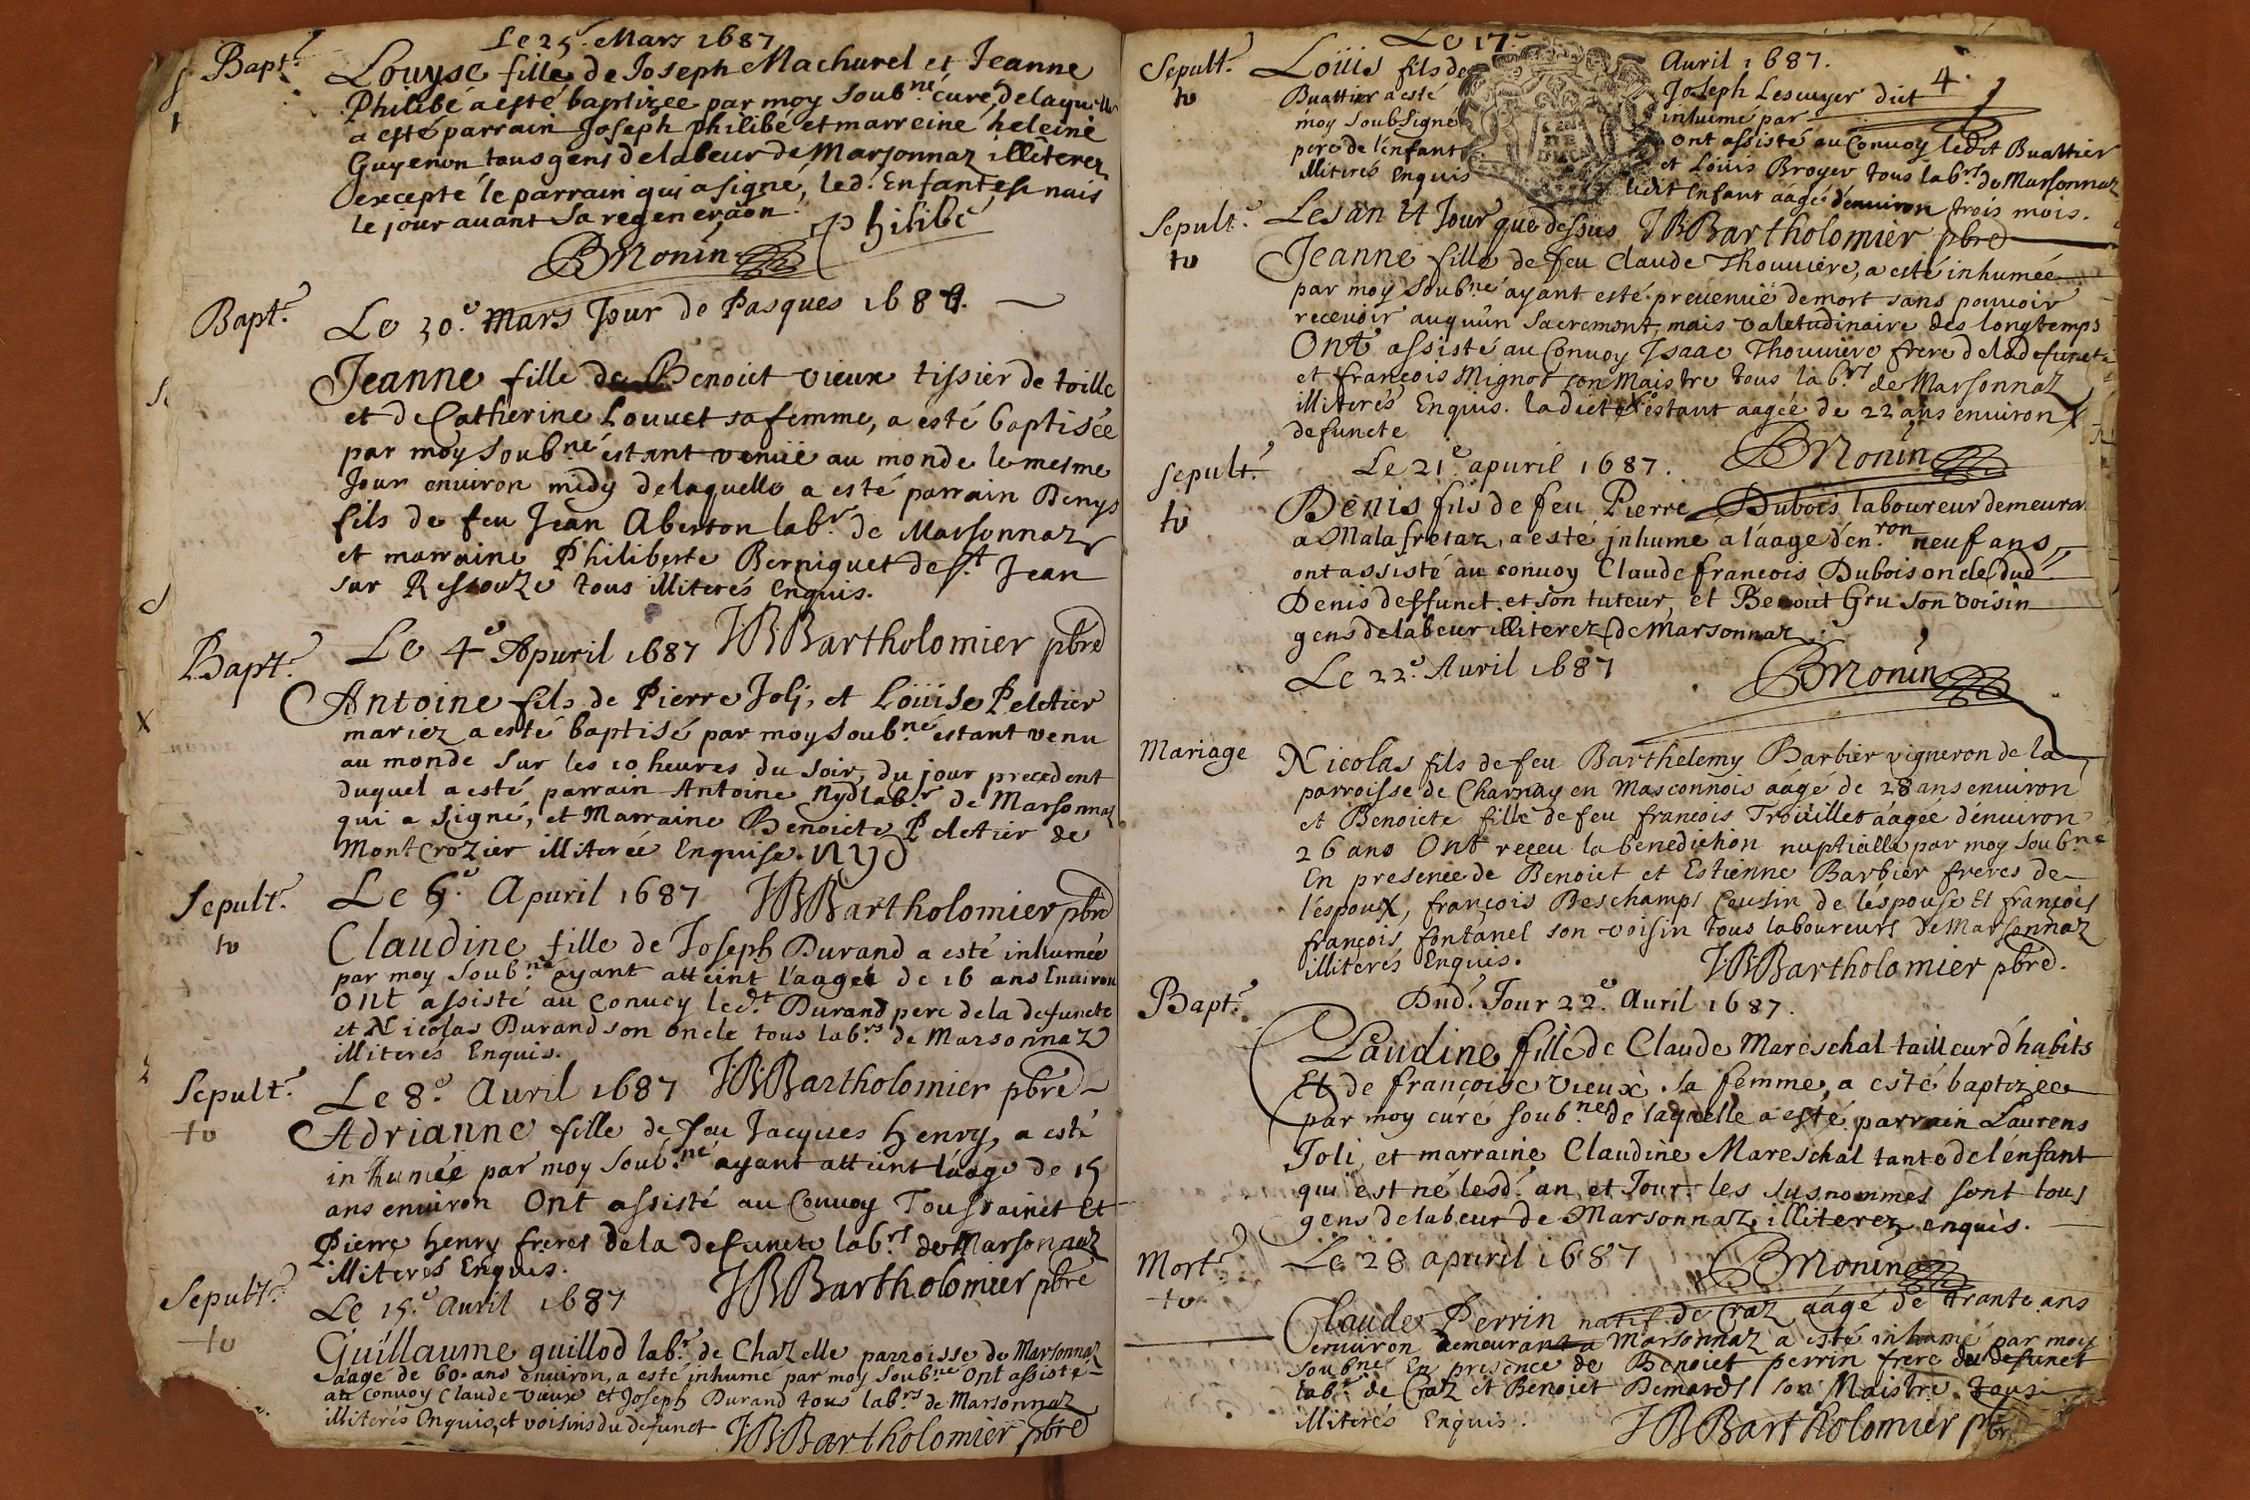 Le 25e. Mars 1687
Bapt.e
Louyse fille de Joseph Machurel et Jeanne
Philibé a esté baptizee par moy soub.né curé, de laquelle
a esté parrain Joseph philibé et marreine heleine
Guyenon tous gens de labeur de Marsonnaz illiterez
excepté le parrain qui a signé, led. Enfant est nais
le jour avant sa regeneraõn. Philibé
BMonin
Bapt.e
Le 30.e Mars Jour de Pasques 1687.
Jeanne fille de Benoict vieux tissier de toille
et de Catherine Louvet sa femme, a esté baptisée
par moy soub.né estant venüe au monde le mesme
Jour environ midy de laquelle a esté parrain Denys
fils de feu Jean Aberton lab.r de Marsonnaz
et marraine Philiberte Berniquet de st Jean
sur Ressouze tous illiterés Enquis.
JBBartholomier pbre
Bapt.e
Le 4e Apuril 1687
Antoine fils de Pierre Joly, et Loüise Peletier
mariez a esté baptisé par moy soub.né estant venu
au monde sur les 10 heures du soir, du jour precedent
duquel a esté parrain Antoine Nyd lab.r de Marsonnaz
qui a signé, et Marraine Benoicte Peletier de
Montcrozier illiterée Enquise. NYD
JBBartholomier pbre
Sepult.e
to
Le 5.e Apuril 1687
Claudine fille de Joseph Durand a esté inhumée
par moy soub.né ayant atteint l'aage de 16 ans Environ
Ont assisté au convoy led.t Durand pere de la defuncte
et Nicolas Durand son oncle tous lab.rs de Marsonnaz
illiterés Enquis.
JBBartholomier pbre
Sepult.e
to
Le 8.e Avril 1687
Adrianne fille de feu Jacques Henry, a esté
inhumée par moy soub.né ayant atteint l'aage de 15
ans environ Ont assisté au Convoy Toussainct Et
Pierre Henry freres de la defuncte lab.rs de Marsonnaz
illiterés Enquis.
JBBartholomier pbre
Sepult.e
to
Le 15.e Avril 1687
Guillaume guillod lab.r de Chazelle parroisse de Marsonnaz
aagé de 60 ans environ, a esté inhumé par moy soub.né Ont assisté
au convoy Claude vieux et Joseph Durand tous lab.rs de Marsonnaz
illiterés Enquis, et voisins du defunct JBBartholomier pbre
Le 17.e Avril 1687.
4.
Sepult.e
to
Loüis fils de Joseph Lescuyer dict
Buattier a esté inhumé par
moy soubsigné Ont assisté au Convoy ledit Buattier
pere de l'enfant et Loüis Broyer tous lab.rs de Marsonnaz
illiterés Enquis ledit Enfant aagé d'environ trois mois.
JBBartholomier pbre
Sepult.e
to
Les an et Jour que dessus
Jeanne fille de feu Claude Thouviere, a esté inhumée
par moy soub.né ayant esté prevenüe de mort sans pouvoir
recevoir auqu'un sacrement, mais valetudinaire des longtemps
Ont assisté au Convoy Isaac Thouviere frere de la defuncte
et françois Mignot son Maistre tous lab.rs de Marsonnaz
illiterés Enquis. ladicte x estant aagée de 22 ans environ x
defuncte
BMonin
sepult.e
to
Le 21.e apuril 1687.
Denis fils de feu Pierre Dubois laboureur demeurant
a Malafretaz, a esté inhume a l'aage d'en.ron neuf ans,
ont assisté au convoy Claude françois Dubois oncle dud.
Denis deffunct et son tuteur, et Benoit Gru son voisin
gens de labeur illiterez de Marsonnaz
BMonin
Le 22.e Avril 1687
Mariage
Nicolas fils de feu Barthelemy Barbier vigneron de la
parroisse de Charnay en Masconnois aagé de 28 ans environ
et Benoicte fille de feu françois Troüillet aagée d'environ
26 ans Ont receu la benediction nuptialle par moy soub.né
En presence de Benoict et Estienne Barbier freres de
l'espoux, françois Deschamps Cousin de l'espouse Et françois
françois fontanel son voisin tous laboureurs de Marsonnaz
illiterés Enquis.
JBBartholomier pbre.
Bapt.e
Dud. Jour 22.e Avril 1687.
Claudine fille de Claude Mareschal tailleur d'habits
Et de françoise vieux sa femme, a esté baptizee
par moy curé soub.né de laquelle a esté parrain Laurens
Joli, et marraine Claudine Mareschal tante de l'enfant
qui est né lesd. an, et Jour. les susnommes sont tous
gens de labeur de Marsonnaz, illiterez enquis.
BMonin
Mort.e
to
Le 28 apuril 1687
Claude Perrin natif de Craz aagé de trante ans
environ demeurant a Marsonnaz a esté inhumé par moy
soub.né En presence de Benoict perrin frere du defunct
lab.r de Craz et Benoict Demards son Maistre tous
illiterés Enquis.
JBBartholomier pbre